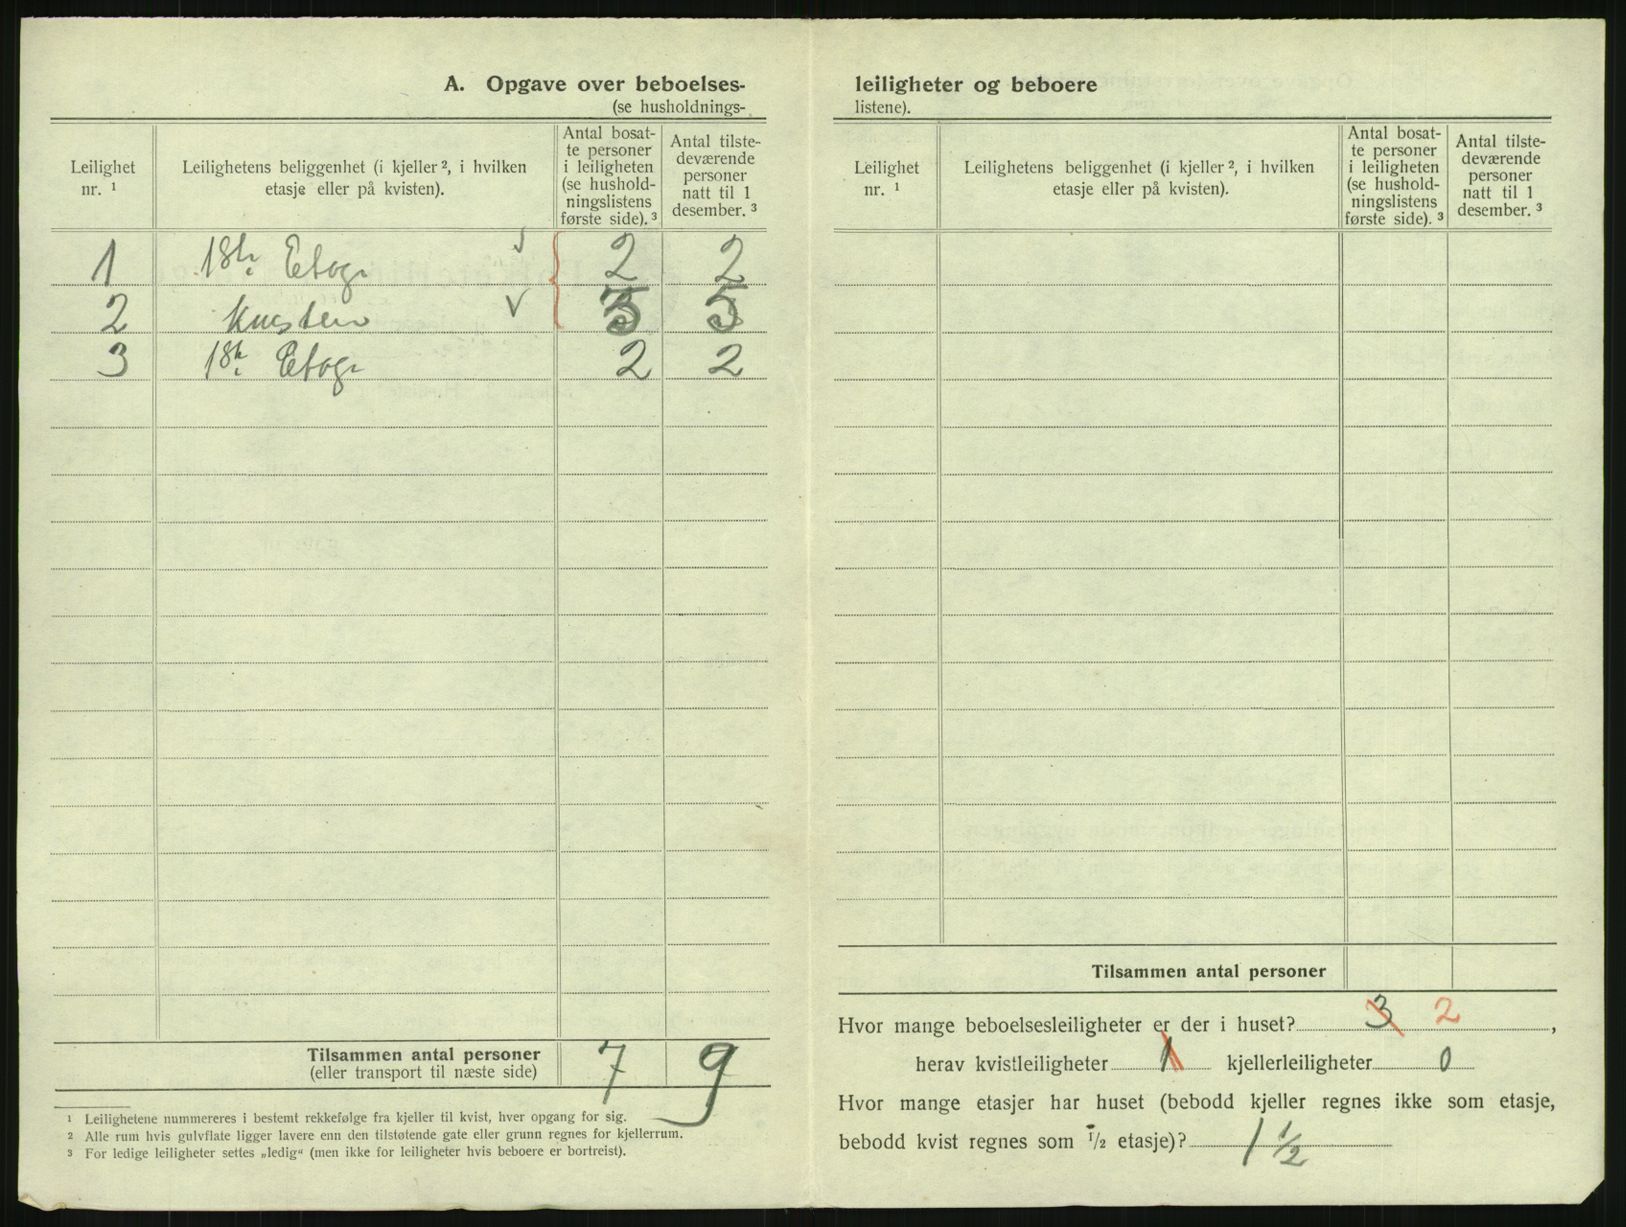 A. Opgave over beboelses-
(se husholdnings-
Leilighet nr. ¹
Leilighetens beliggenhet (i kjeller ², i hvilken etasje eller på kvisten).
Antal bosat-
te personer
i leiligheten
(se hushold-
ningslistens
første side). ³
Antal tilste-
deværende
personer
natt til 1
desember. ³
1 1ste Etage 2 2
2 Kvisten 5
3 1ste Etage 2 2
Tilsammen antal personer 7 9
(eller transport til næste side)
¹ Leilighetene nummereres i bestemt rekkefølge fra kjeller til kvist, hver opgang for sig.
² Alle rum hvis gulvflate ligger lavere enn den tilstøtende gate eller grunn regnes for kjellerrum.
³ For ledige leiligheter settes „ledig“ (men ikke for leiligheter hvis beboere er bortreist).
leiligheter og beboere
listene).
Leilighet nr. ¹
Leilighetens beliggenhet (i kjeller ², i hvilken etasje eller på kvisten).
Antal bosat-
te personer
i leiligheten
(se hushold-
ningslistens
første side). ³
Antal tilste-
deværende
personer
natt til 1
desember. ³
Tilsammen antal personer
Hvor mange beboelsesleiligheter er der i huset? 3 2,
herav kvistleiligheter 1 kjellerleiligheter 0
Hvor mange etasjer har huset (bebodd kjeller regnes ikke som etasje,
bebodd kvist regnes som ½ etasje)? 1 ½